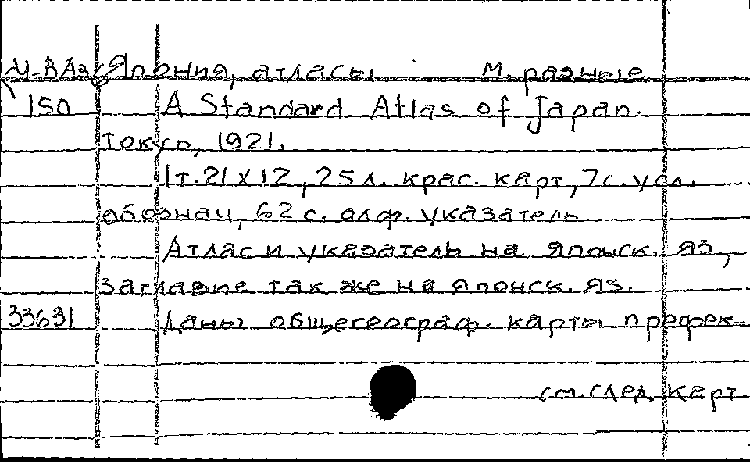 М-ВАз Япония, атласы. М. разные
150 A Standard Atlas of Japan.
Tokyo, 1921.
1т. 21 x 12, 25 л. крас. карт, 7 с. усл.
обознач, 62 с. алф. указатель
Атлас и указатель на японск. яз,
заглавие так же на японск. яз.
33631 Даны общегеограф. карты префек-
см. след. карт